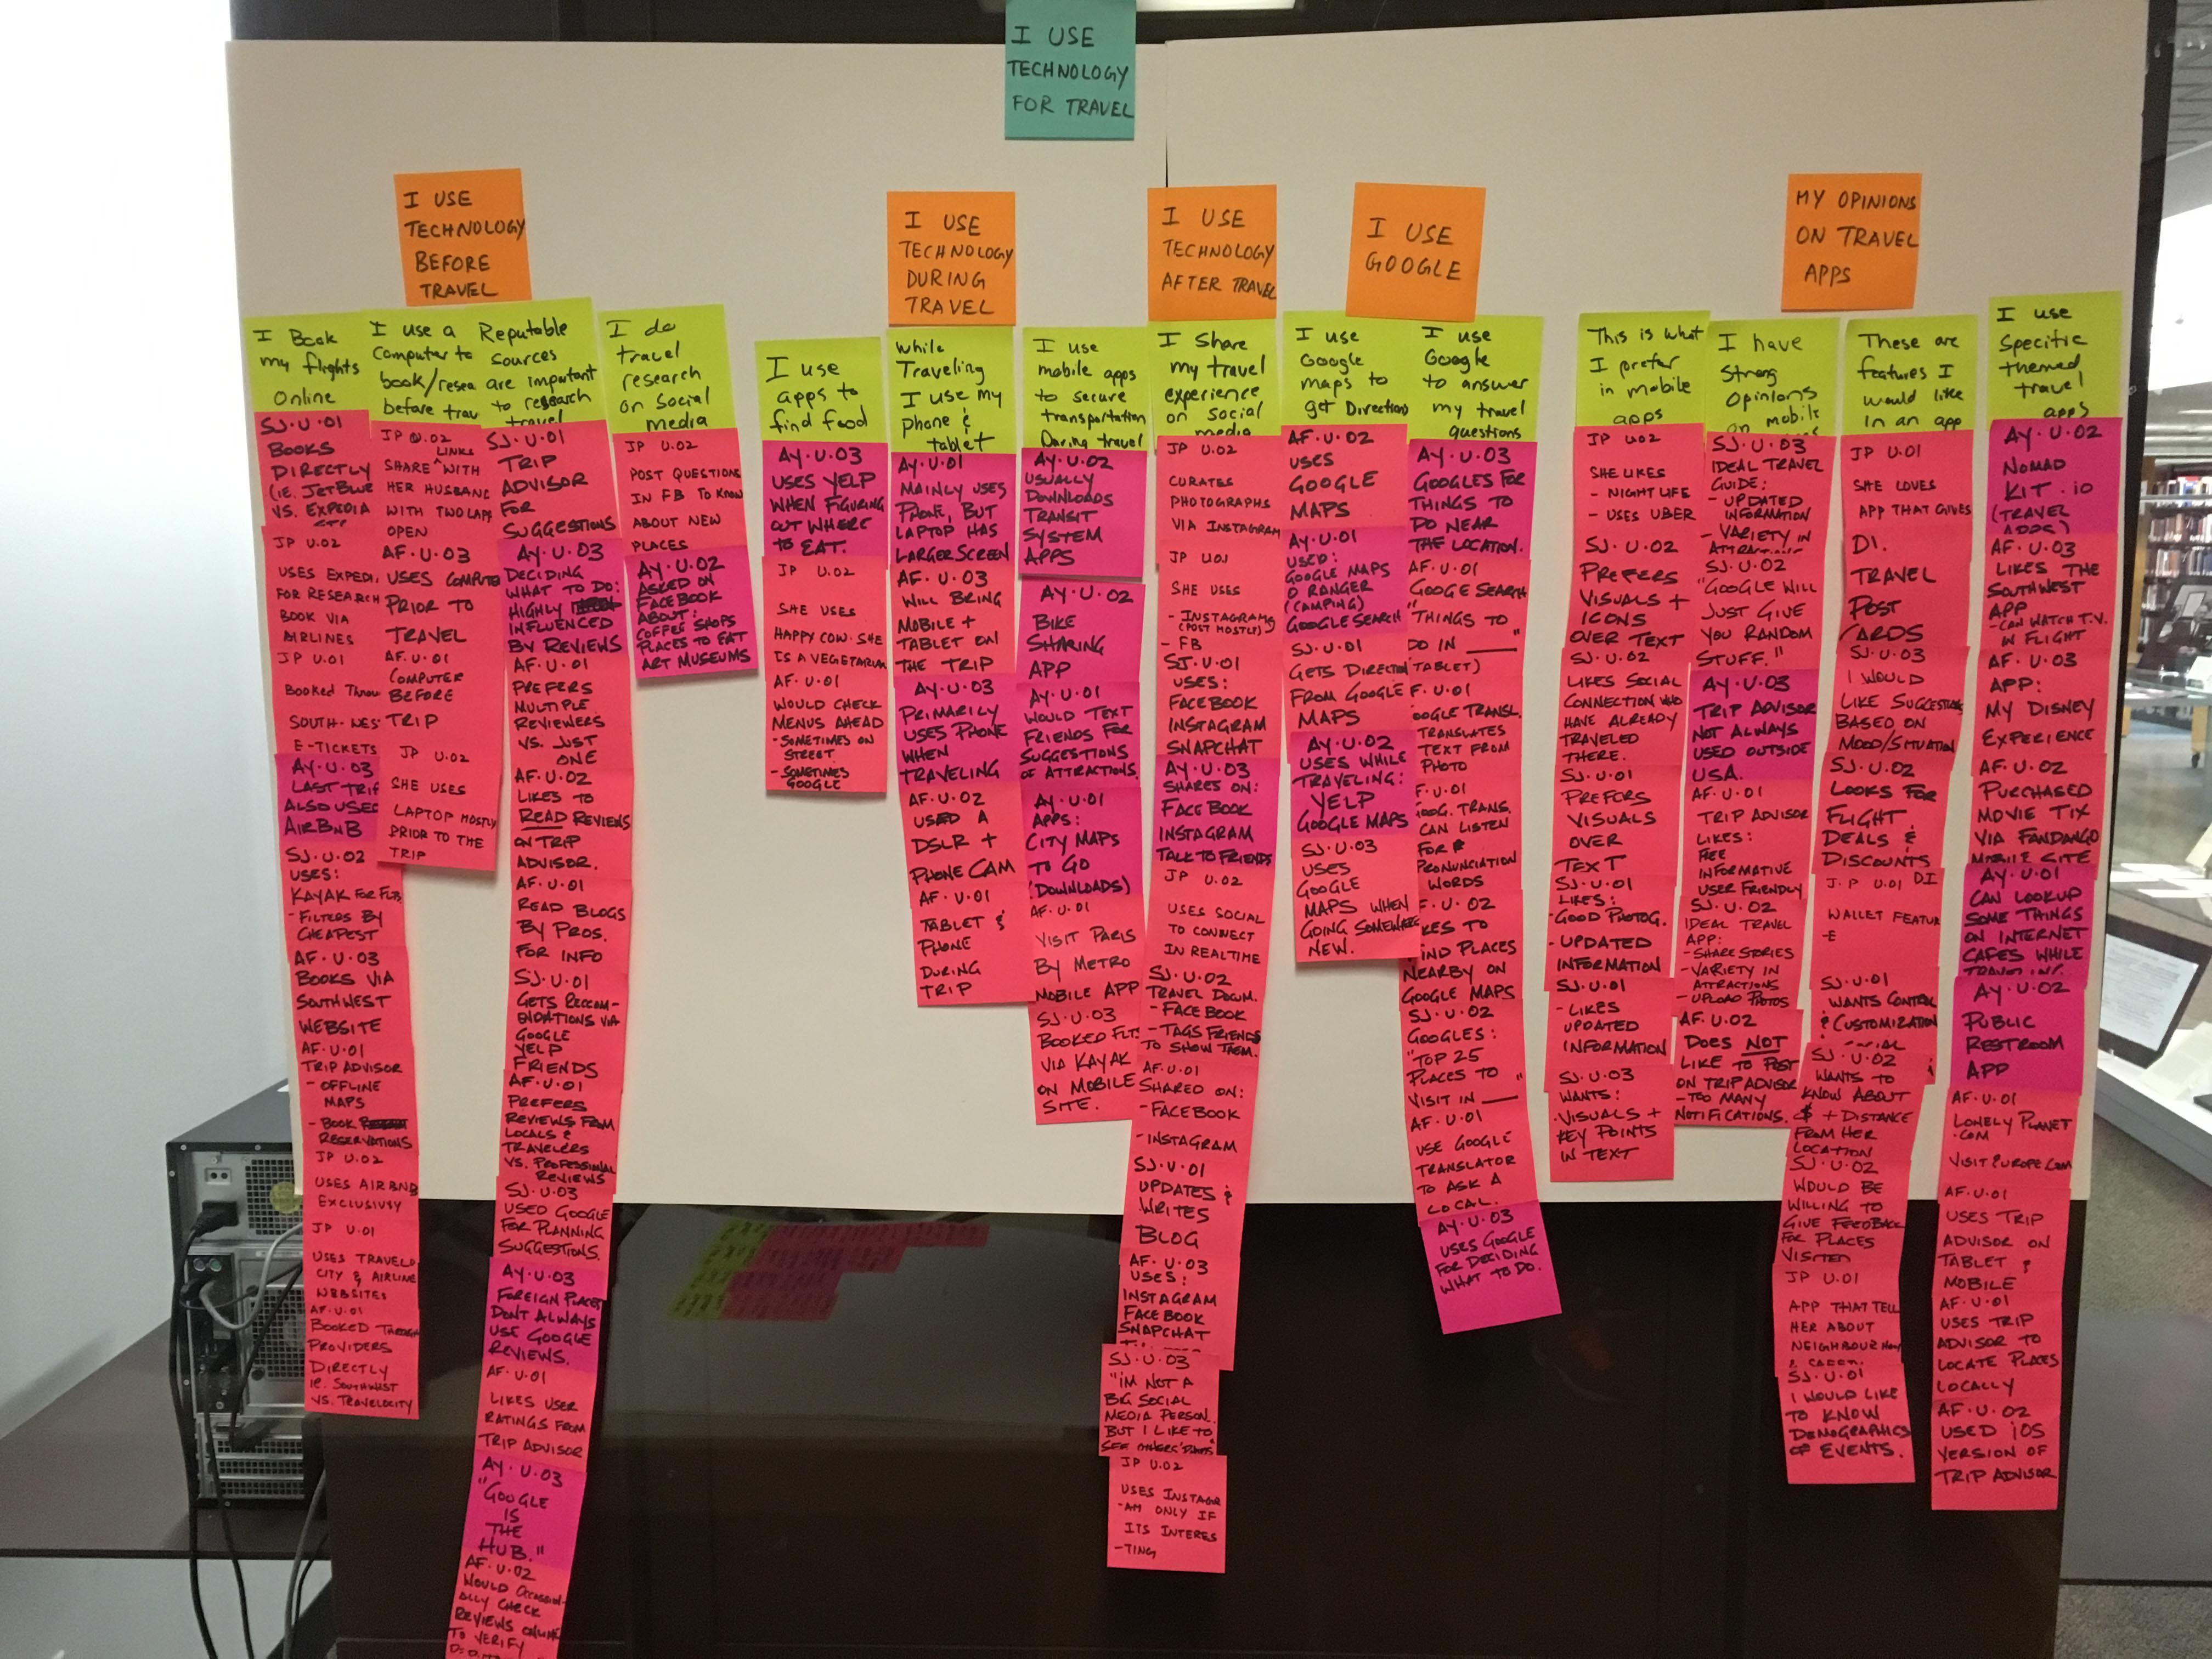 I USE
TECHNOLOGY
FOR TRAVEL
I USE
TECHNOLOGY
BEFORE
TRAVEL
I USE
TECHNOLOGY
DURING
TRAVEL
I USE
TECHNOLOGY
AFTER TRAVEL
I USE
GOOGLE
MY OPINIONS
ON TRAVEL
APPS
I Book
my flights
Online
SJ.U.01
BOOKS
DIRECTLY
(IE. JETBLUE
VS. EXPEDIA
JP U.02
USES EXPEDI
FOR RESEARCH
BOOK VIA
AIRLINES
JP U.01
BOOKED THROU
SOUTH-WES
E-TICKETS
AY.U.03
LAST TRIP
ALSO USED
AIRBNB
SJ.U.02
USES:
KAYAK FOR FLTS
- FILTERS BY
CHEAPEST
AF.U.03
BOOKS VIA
SOUTHWEST
WEBSITE
AF.U.01
TRIP ADVISOR
- OFFLINE
MAPS
- BOOK
RESERVATIONS
JP U.02
USES AIRBNB
EXCLUSIVY
JP U.01
USES TRAVELO
CITY & AIRLINE
WEBSITES
AF.U.01
BOOKED THROUGH
PROVIDERS
DIRECTLY
IE. SOUTHWEST
VS. TRAVELOCITY
I use a
Computer to
book/resea
before trav
JP U.02
LINKS
SHARE ^ WITH
HER HUSBAND
WITH TWO LAPS
OPEN
AF.U.03
USES COMPUTE
PRIOR TO
TRAVEL
AF.U.01
COMPUTER
BEFORE
TRIP
JP U.02
SHE USES
LAPTOP MOSTLY
PRIOR TO THE
TRIP
Reputable
sources
are important
to research
travel
SJ.U.01
TRIP
ADVISOR
FOR
SUGGESTIONS
AY.U.03
DECIDING
WHAT TO DO:
HIGHLY
INFLUENCED
BY REVIEWS
AF.U.01
PREFERS
MULTIPLE
REVIEWERS
VS. JUST
ONE
AF.U.02
LIKES TO
READ REVIEWS
ON TRIP
ADVISOR.
AF.U.01
READ BLOGS
BY PROS.
FOR INFO
SJ.U.01
GETS RECCOM-
ENDATIONS VIA
GOOGLE
YELP
FRIENDS
AF.U.01
PREFERS
REVIEWS FROM
LOCALS &
TRAVELERS
VS. PROFESSIONAL
REVIEWS
SJ.U.03
USED GOOGLE
FOR PLANNING
SUGGESTIONS.
AY.U.03
FOREIGN PLACES
DON'T ALWAYS
USE GOOGLE
REVIEWS.
AF.U.01
LIKES USER
RATINGS FROM
TRIP ADVISOR
AY.U.03
"GOOGLE
IS
THE
HUB."
AF.U.02
WOULD OCCASION-
ALLY CHECK
REVIEWS ONLINE
TO VERIFY
I do
travel
research
on Social
media
JP U.02
POST QUESTIONS
IN FB TO KNOW
ABOUT NEW
PLACES
AY.U.02
ASKED ON
FACEBOOK
ABOUT:
COFFEE SHOPS
PLACES TO EAT
ART MUSEUMS
I use
apps to
find food
AY.U.03
USES YELP
WHEN FIGURING
OUT WHERE
TO EAT.
JP U.02
SHE USES
HAPPY COW. SHE
IS A VEGETARIAN
AF.U.01
WOULD CHECK
MENUS AHEAD
- SOMETIMES ON
STREET.
- SOMETIMES
GOOGLE
While
Traveling
I use my
phone &
tablet
AY.U.01
MAINLY USES
PHONE, BUT
LAPTOP HAS
LARGER SCREEN
AF.U.03
WILL BRING
MOBILE +
TABLET ON
THE TRIP
AY.U.03
PRIMARILY
USES PHONE
WHEN
TRAVELING
AF.U.02
USED A
DSLR +
PHONE CAM
AF.U.01
TABLET &
PHONE
DURING
TRIP
I use
mobile apps
to secure
transportation
During travel
AY.U.02
USUALLY
DOWNLOADS
TRANSIT
SYSTEM
APPS
AY.U.02
BIKE
SHARING
APP
AY.U.01
WOULD TEXT
FRIENDS FOR
SUGGESTIONS
OF ATTRACTIONS.
AY.U.01
APPS:
CITY MAPS
TO GO
(DOWNLOADS)
AF.U.01
VISIT PARIS
BY METRO
MOBILE APP
SJ.U.03
BOOKED FLT.
VIA KAYAK
ON MOBILE
SITE.
I Share
my travel
experience
on social
media
JP U.02
CURATES
PHOTOGRAPHS
VIA INSTAGRAM
JP U.01
SHE USES
- INSTAGRAM
(POST MOSTLY)
- FB
SJ.U.01
USES:
FACEBOOK
INSTAGRAM
SNAPCHAT
AY.U.03
SHARES ON:
FACEBOOK
INSTAGRAM
TALK TO FRIENDS
JP U.02
USES SOCIAL
TO CONNECT
IN REALTIME
SJ.U.02
TRAVEL DOCUM.
- FACEBOOK
- TAGS FRIENDS
TO SHOW THEM.
AF.U.01
SHARED ON:
- FACEBOOK
- INSTAGRAM
SJ.U.01
UPDATES &
WRITES
BLOG
AF.U.03
USES:
INSTAGRAM
FACEBOOK
SNAPCHAT
SJ.U.03
"I'M NOT A
BIG SOCIAL
MEDIA PERSON..
BUT I LIKE TO
SEE OTHERS'
JP U.02
USES INSTAGR
-AM ONLY IF
ITS INTERES
-TING
I use
Google
maps to
get Directions
AF.U.02
USES
GOOGLE
MAPS
AY.U.01
USED:
GOOGLE MAPS
O RANGER
(CAMPING)
GOOGLE SEARCH
SJ.U.01
GETS DIRECTION
FROM GOOGLE
MAPS
AY.U.02
USES WHILE
TRAVELING:
YELP
GOOGLE MAPS
SJ.U.03
USES
GOOGLE
MAPS WHEN
GOING SOMEWHERE
NEW.
I use
Google
to answer
my travel
questions
AY.U.03
GOOGLES FOR
THINGS TO
DO NEAR
THE LOCATION.
AF.U.01
GOOGLE SEARCH
"THINGS TO
DO IN ___"
TABLET)
F.U.01
OOGLE TRANSL.
TRANSLATES
TEXT FROM
PHOTO
F.U.01
OOG. TRANS.
CAN LISTEN
FOR
PRONUNCIATION
WORDS
F.U.02
KES TO
IND PLACES
NEARBY ON
GOOGLE MAPS
SJ.U.02
GOOGLES:
"TOP 25
PLACES TO
VISIT IN ___"
AF.U.01
USE GOOGLE
TRANSLATOR
TO ASK A
LOCAL.
AY.U.03
USES GOOGLE
FOR DECIDING
WHAT TO DO.
This is what
I prefer
in mobile
apps
JP U.02
SHE LIKES
- NIGHT LIFE
- USES UBER
SJ.U.02
PREFERS
VISUALS +
ICONS
OVER TEXT
SJ.U.02
LIKES SOCIAL
CONNECTION WHO
HAVE ALREADY
TRAVELED
THERE.
SJ.U.01
PREFERS
VISUALS
OVER
TEXT
SJ.U.01
LIKES:
- GOOD PHOTOG.
- UPDATED
INFORMATION
SJ.U.01
- LIKES
UPDATED
INFORMATION
SJ.U.03
WANTS:
- VISUALS +
KEY POINTS
IN TEXT
I have
Strong
Opinions
on mobile
SJ.U.03
IDEAL TRAVEL
GUIDE:
- UPDATED
INFORMATION
- VARIETY IN
SJ.U.02
"GOOGLE WILL
JUST GIVE
YOU RANDOM
STUFF."
AY.U.03
TRIP ADVISOR
NOT ALWAYS
USED OUTSIDE
USA.
AF.U.01
TRIP ADVISOR
LIKES:
FREE
INFORMATIVE
USER FRIENDLY
SJ.U.02
IDEAL TRAVEL
APP:
- SHARE STORIES
- VARIETY IN
ATTRACTIONS
- UPLOAD PHOTOS
AF.U.02
DOES NOT
LIKE TO POST
ON TRIP ADVISOR
- TOO MANY
NOTIFICATIONS.
These are
features I
would like
In an app
JP U.01
SHE LOVES
APP THAT GIVES
DI.
TRAVEL
POST
CARDS
SJ.U.03
I WOULD
LIKE SUGGESTIONS
BASED ON
MOOD/SITUATION
SJ.U.02
LOOKS FOR
FLIGHT
DEALS &
DISCOUNTS
J.P U.01 DI
WALLET FEATUR
-E
SJ.U.01
WANTS CONTROL
& CUSTOMIZATION
SJ.U.02
WANTS TO
KNOW ABOUT
$ + DISTANCE
FROM HER
LOCATION
SJ.U.02
WOULD BE
WILLING TO
GIVE FEEDBACK
FOR PLACES
VISITED
JP U.01
APP THAT TELL
HER ABOUT
NEIGHBOURHOOD
SJ.U.01
I WOULD LIKE
TO KNOW
DEMOGRAPHICS
OF EVENTS.
I use
Specific
themed
travel
apps
AY.U.02
NOMAD
KIT.io
(TRAVEL
APPS)
AF.U.03
LIKES THE
SOUTHWEST
APP
- CAN WATCH T.V.
IN FLIGHT
AF.U.03
APP:
MY DISNEY
EXPERIENCE
AF.U.02
PURCHASED
MOVIE TIX
VIA FANDANGO
MOBILE SITE
AY.U.01
CAN LOOKUP
SOME THINGS
ON INTERNET
CAFES WHILE
TRAVELING.
AY.U.02
PUBLIC
RESTROOM
APP
AF.U.01
LONELY PLANET
.COM
VISIT EUROPE.COM
AF.U.01
USES TRIP
ADVISOR ON
TABLET &
MOBILE
AF.U.01
USES TRIP
ADVISOR TO
LOCATE PLACES
LOCALLY
AF.U.02
USED iOS
VERSION OF
TRIP ADVISOR